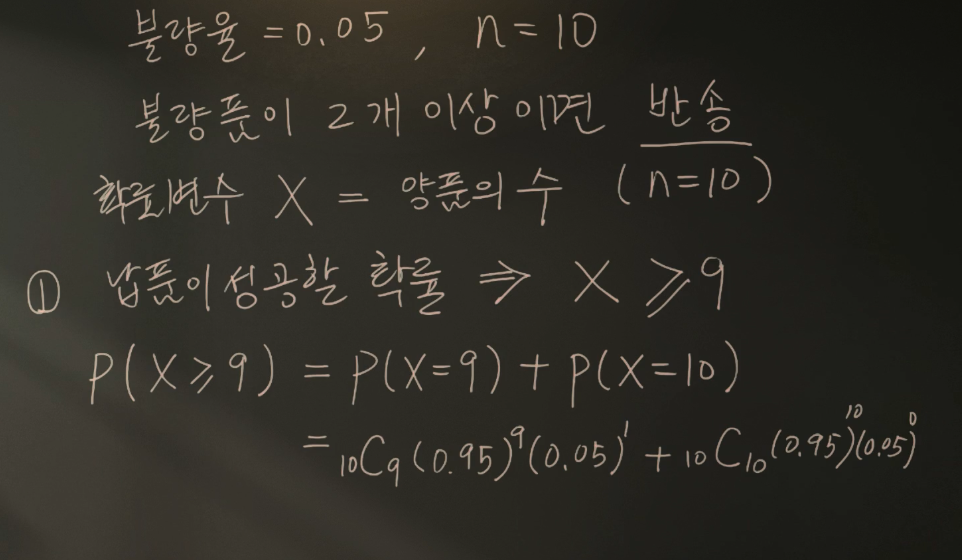 불량율 = 0.05, n = 10
불량품이 2개 이상이면 반송
확률변수 X = 양품의 수 (n=10)
① 납품이 성공할 확률 ⇒ X ⩾ 9
P(X⩾9) = P(X=9) + P(X=10)
= ₁₀C₉ (0.95)⁹(0.05)¹ + ₁₀C₁₀ (0.95)¹⁰(0.05)⁰